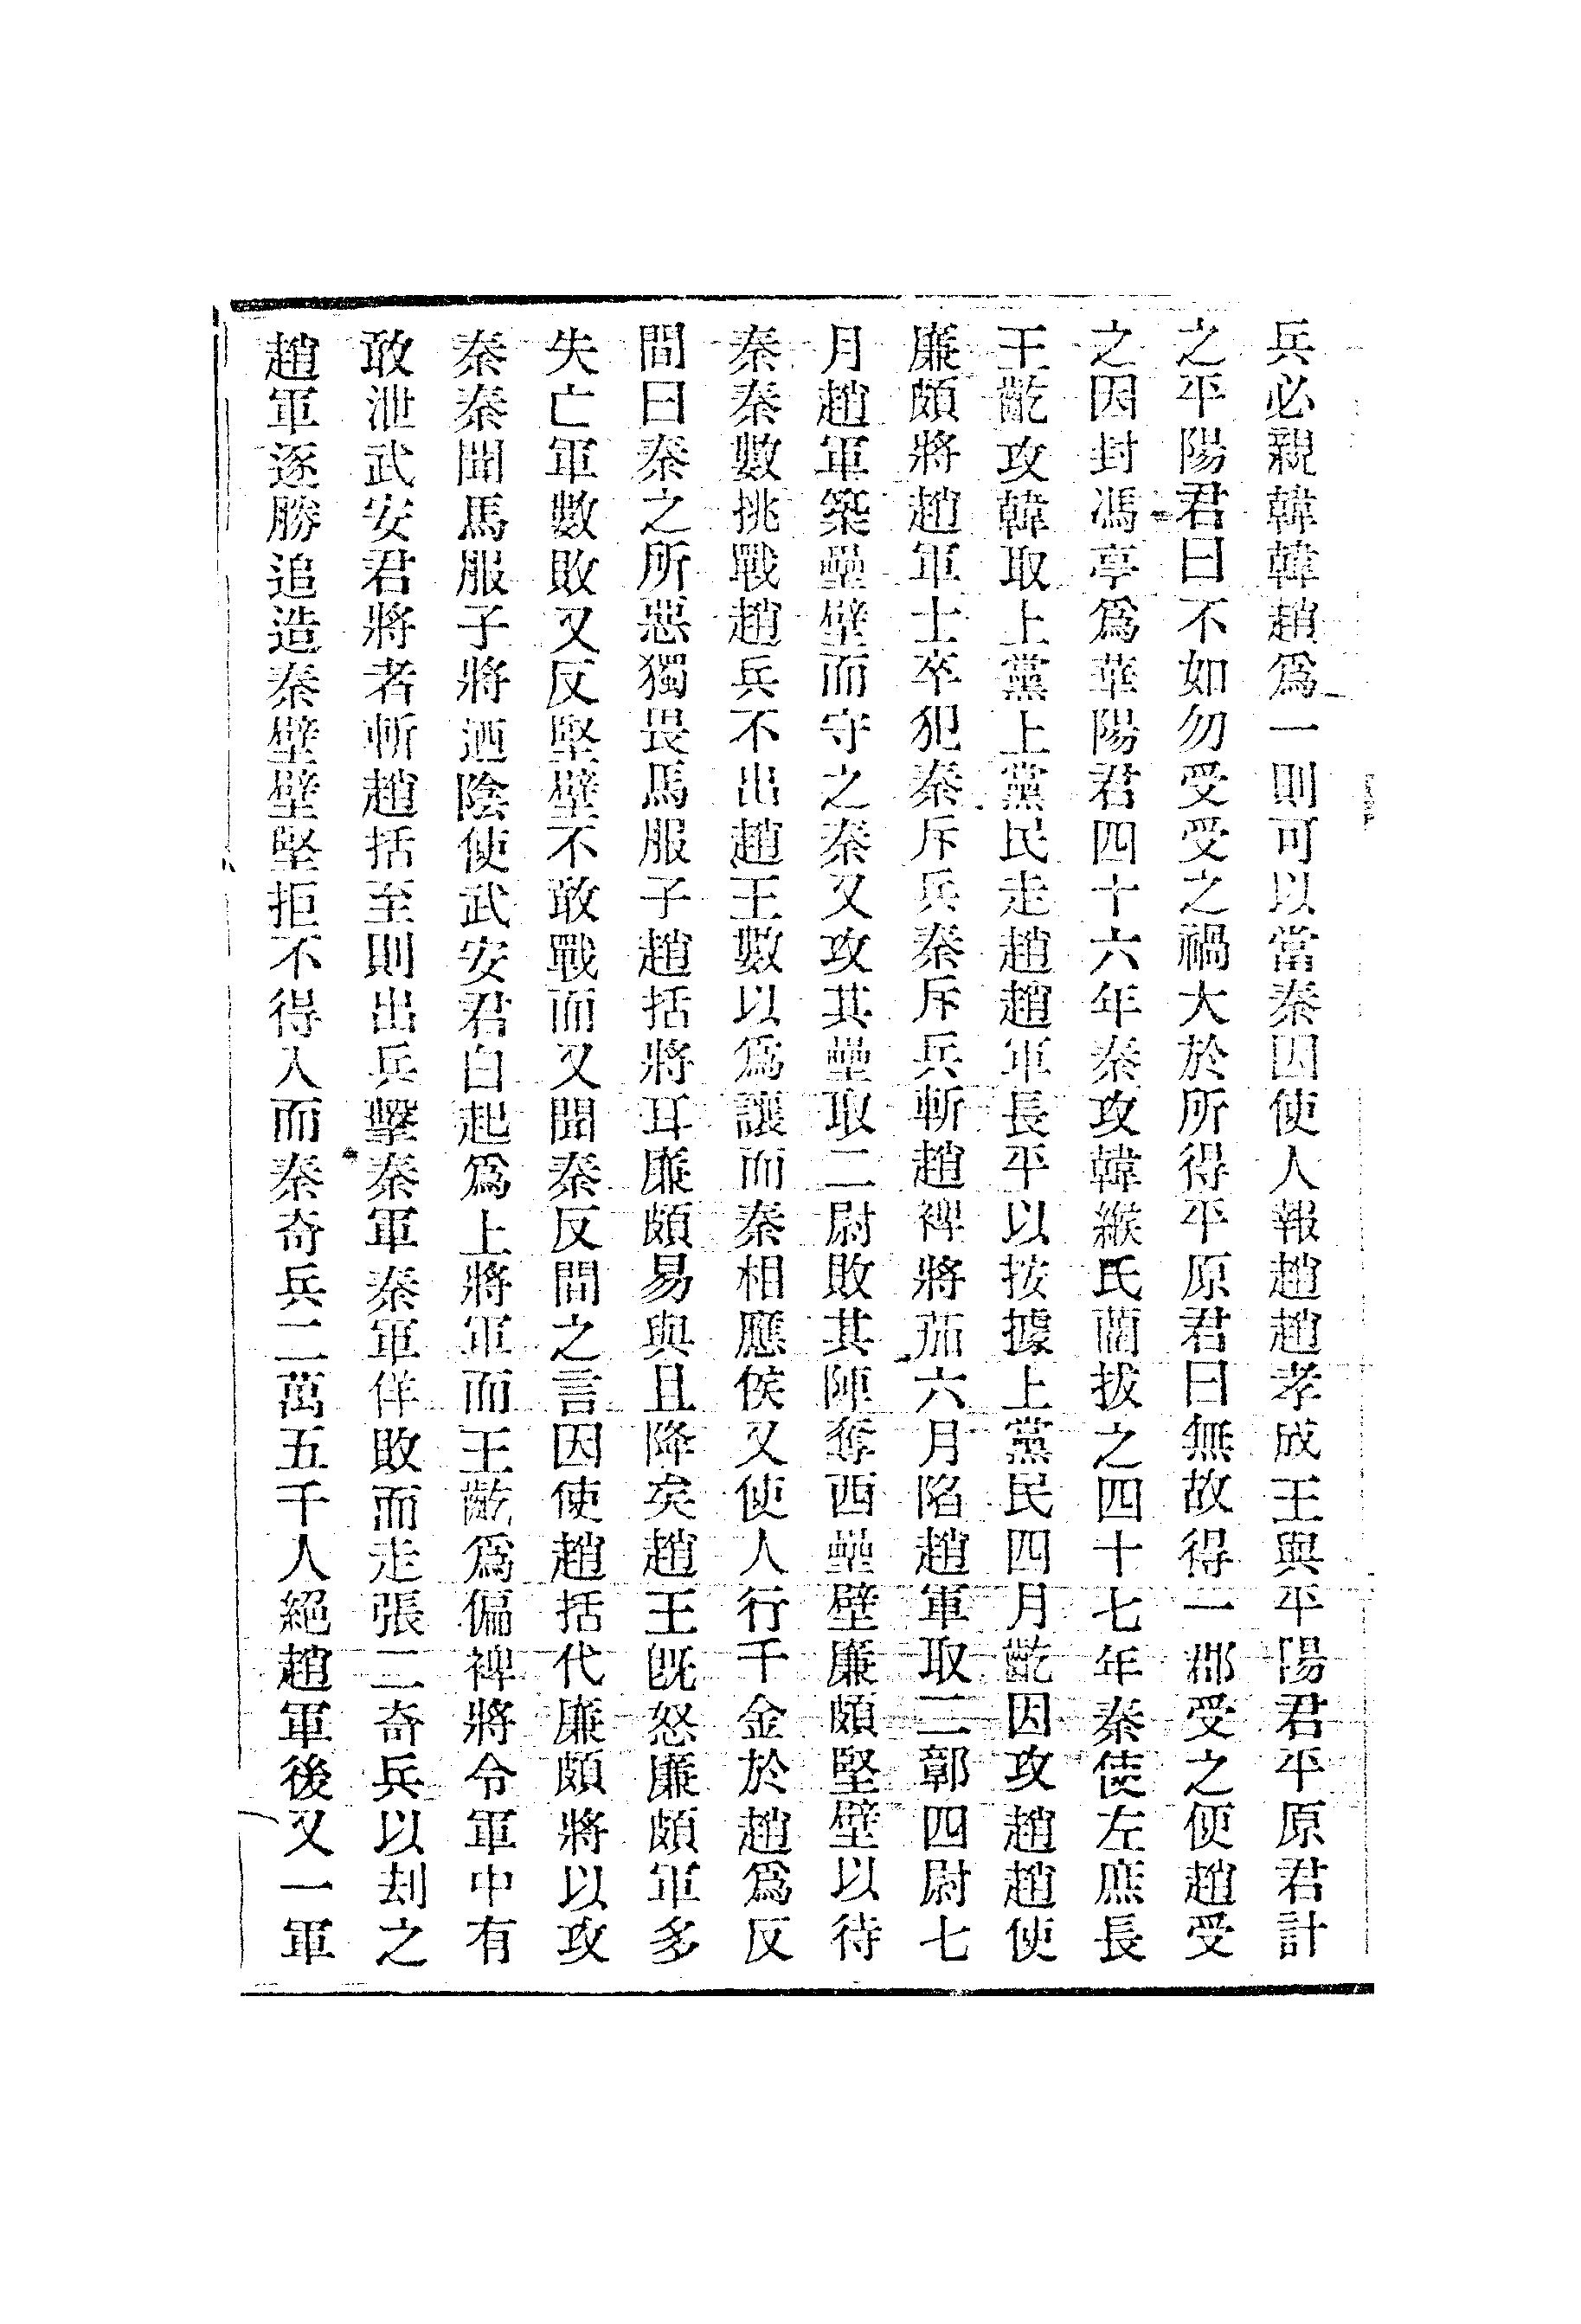 兵必親韓韓趙爲一則可以當秦因使人報趙趙孝成王與平陽君平原君計
之平陽君曰不如勿受受之禍大於所得平原君曰無故得一郡受之便趙受
之因封馮亭爲華陽君四十六年秦攻韓緱氏藺拔之四十七年秦使左庶長
王齕攻韓取上黨上黨民走趙趙軍長平以按據上黨民四月齕因攻趙趙使
廉頗將趙軍士卒犯秦斥兵秦斥兵斬趙裨將茄六月陷趙軍取二鄣四尉七
月趙軍築壘壁而守之秦又攻其壘取二尉敗其陣奪西壘壁廉頗堅壁以待
秦秦數挑戰趙兵不出趙王數以爲讓而秦相應侯又使人行千金於趙爲反
間曰秦之所惡獨畏馬服子趙括將耳廉頗易與且降矣趙王旣怒廉頗軍多
失亡軍數敗又反堅壁不敢戰而又聞秦反間之言因使趙括代廉頗將以攻
秦秦聞馬服子將迺陰使武安君白起爲上將軍而王齕爲偏裨將令軍中有
敢泄武安君將者斬趙括至則出兵擊秦軍秦軍佯敗而走張二奇兵以刦之
趙軍逐勝追造秦壁壁堅拒不得入而秦奇兵二萬五千人絕趙軍後又一軍